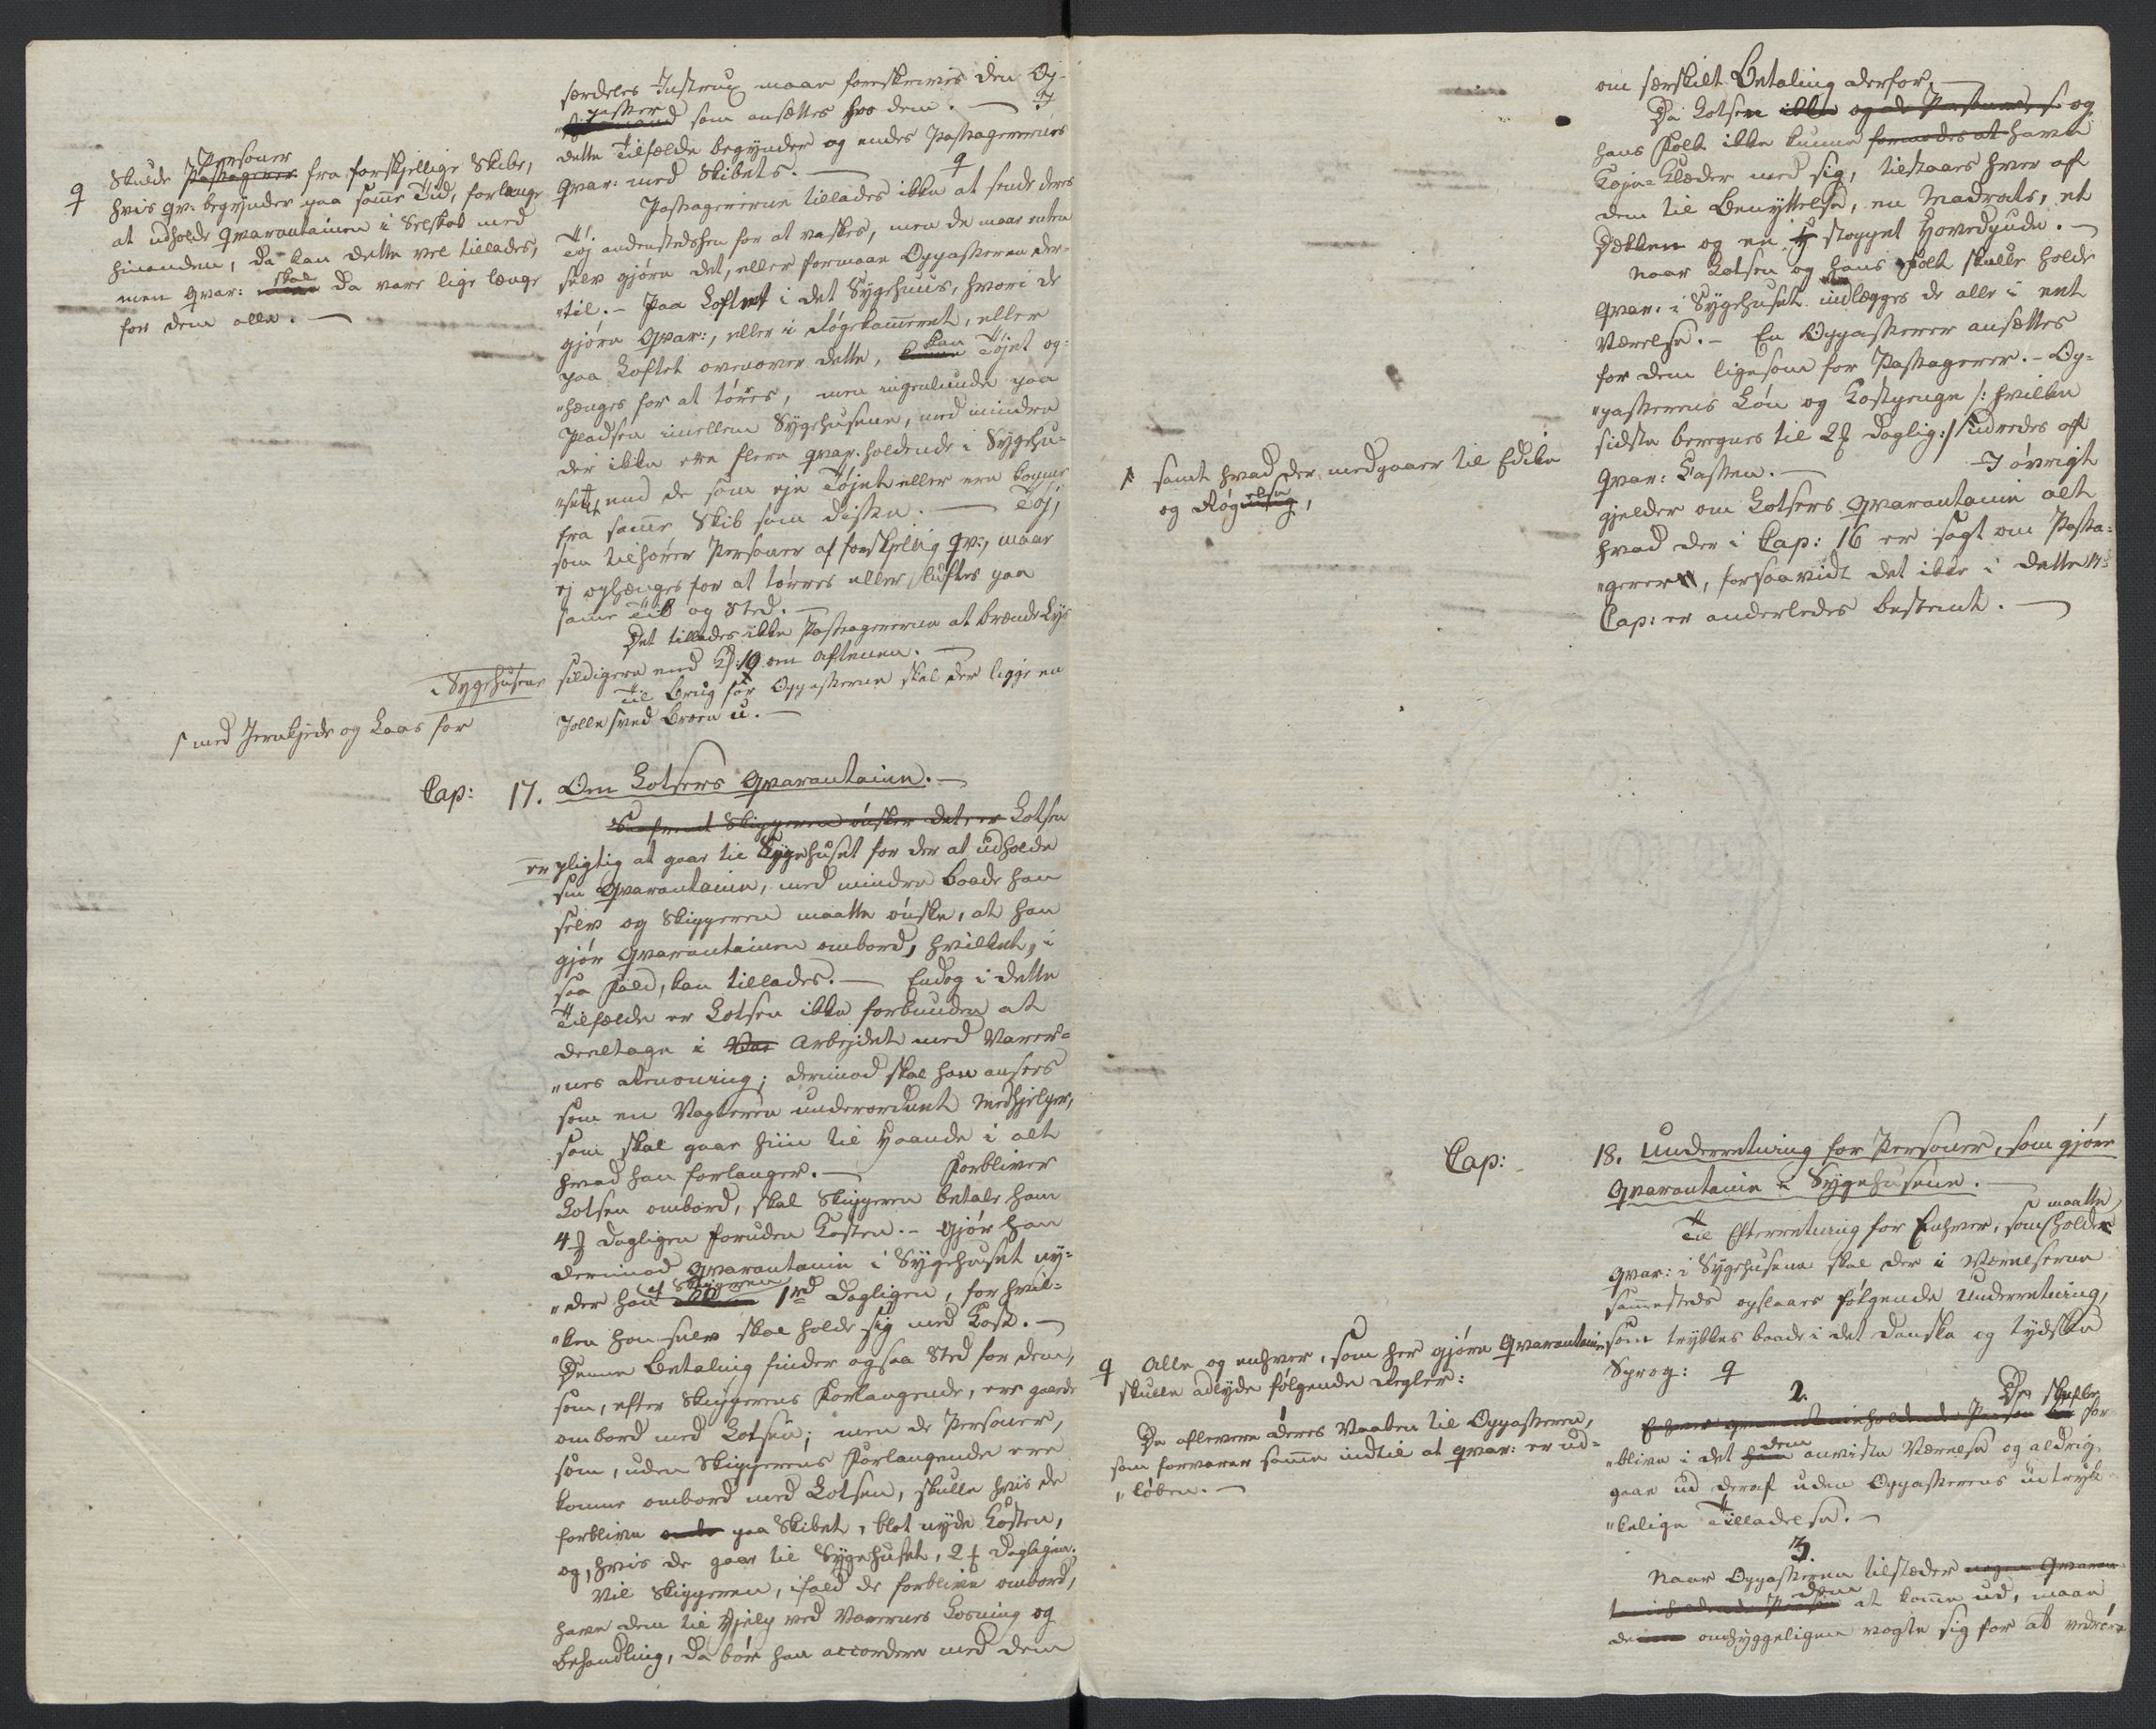 særdeles Instrux maae foreskrives den Op-
passer som ansættes hos dem. — I
dette Tilfælde begynder og endes Passagerernes
Qvar: med Skibets. — q
q Skulde Personer Passagerer fra forskjellige Skibe,
hvis Qv: begynder paa samme Tid, forlange
at udholde Qvarantainen i Selskab med
hinanden, da kan dette vel tillades,
men Qvar: skal da vare lige længe
for dem alle. —
Passagererne tillades ikke at sende deres
Tøj andenstedshen for at vaskes, men de maae enten
selv gjøre det, eller formaae Oppasseren der-
"til. – Paa Loftet i det Sygehuus, hvori de
gjøre Qvar:, eller i Røgekammeret, eller
paa Loftet ovenover dette, kan Tøjet op-
"hænges for at tørres, men ingenlunde paa
Pladsen imellem Sygehusene, med mindre
der ikke ere flere Qvar. holdende i Sygehu-
"set, end de som eje Tøjet eller ere komne
fra samme Skib som disse. — Tøj,
som tilhører Personer af forskjellig Qv:, maae
ej ophænges for at tørres eller luftes paa
samme Tid og Sted. —
Det tillades ikke Passagererne at brænde Lys
i Sygehusene sildigere end Kl. 10 om Aftenen. —
Til Brug for Oppasserne skal der ligge en
Jolle ved Broen
med Jernkjede og Laas for
Cap: 17. Om Lotsers Qvarantaine. —
Saafremt Skipperen ønsker det er Lotsen
er pligtig at gaae til Sygehuset for der at udholde
sin Qvarantaine, med mindre baade han
selv og Skipperen maatte ønske, at han
gjør Qvarantainen ombord, hvilket, i
saa Fald, kan tillades. — Endog i dette
Tilfælde er Lotsen ikke forbunden at
deeltage i Var Arbejdet med Varer-
"nes Renovring; derimod skal han ansees
som en Vagteren underordnet Medhjelper,
som skal gaae hiin til Haande i alt
hvad han forlanger. — Forbliver
Lotsen ombord, skal Skipperen betale ham
4 ß dagligen foruden Kosten. – Gjør han
derimod Qvarantaine i Sygehuset ny-
"der han af Skipperen 1 rd dagligen, for hvil-
"ken han selv skal holde sig med Kost. —
Denne Betaling finder ogsaa Sted for dem,
som, efter Skipperens Forlangende, ere gaaede
ombord med Lotsen; men de Personer,
som, uden Skipperens Forlangende ere
komne ombord med Lotsen, skulle hvis de
forblive paa Skibet, blot nyde Kosten,
og, hvis de gaae til Sygehuset, 2 ß dagligen.
Vil Skipperen, ifald de forblive ombord,
have dem til Hjelp ved Varernes Losning og
Behandling, da bør han accordere med dem
om særskilt Betaling derfor. —
Da Lotsen ikke og de Personer, s og
hans Folk ikke kunne formodes at have
Køje-Klæder med sig, tilstaaes hver af
dem til Benyttelse, en Madrats, et
Dækken og en H stoppet Hovedpude. —
Naar Lotsen og hans Folk skulle holde
Qvar: i Sygehuset indlægges de alle i eet
Værelse. – En Oppasserer ansættes
for dem ligesom for Passagerer. – Op-
"passerens Løn og Kostpenge /: hvilke
sidste beregnes til 2 ß daglig :/ udredes af
samt hvad der medgaaer til Edike
og Røgelse,
Qvar: Cassen. — I øvrigt
gjelder om Lotsers Qvarantaine alt
hvad der i Cap: 16 er sagt om Passa-
"gerer, forsaavidt det ikke i dette
Cap: er anderledes bestemt. —
Cap: 18. Underretning for Personer, som gjøre
Qvarantaine i Sygehusene. —
Til Efterretning for Enhver, som maatte holde
Qvar: i Sygehusene skal der i Værelserne
sammesteds opslaaes følgende Underretning,
som trykkes baade i det danske og tydske
Sprog: q
q Alle og enhver, som her gjøre Qvarantaine
skulle adlyde følgende Regler:
1
De aflevere deres Vaaben til Oppasseren,
som forvarer samme indtil at Qvar: er ud-
"løben. —
2.
Enhver qvarantaineholdende Person bør De skulle for-
"blive i det ham dem anviste Værelse og aldrig
gaae ud deraf uden Oppasserens udtryk-
"kelige Tilladelse. —
3.
Naar Oppasseren tilsteder nogen Qvaran-
taineholdende Person dem at komme ud, maae
de omhyggeligen vogte sig for at vedrøre